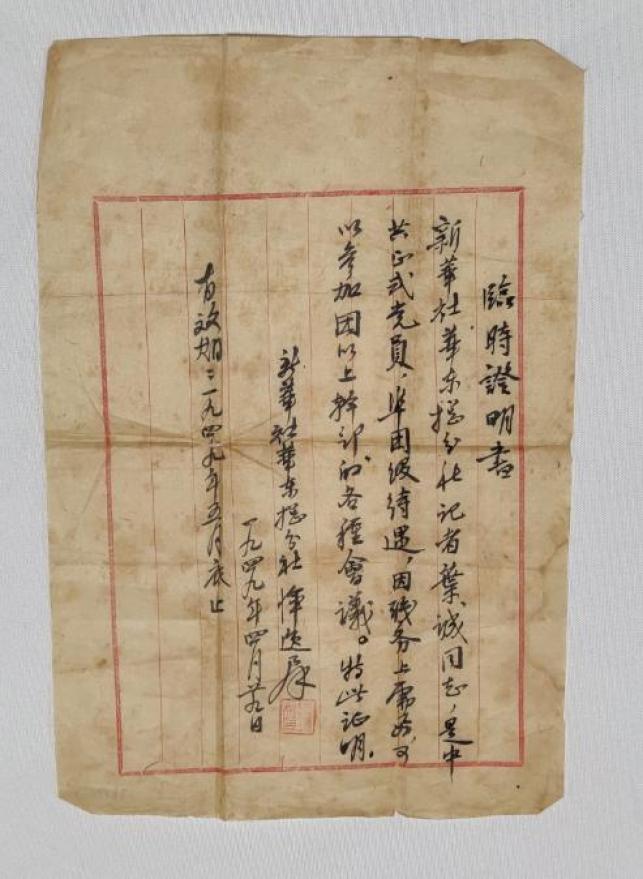 臨時證明書
新華社華东揔分社记者葉诚同志，是中
共正式党員，準团级待遇，因职务上需要可
以参加团以上幹部的各種會議。特此证明。
新華社華东揔分社 恽逸群
一九四九年四月廿九日
有效期：一九四九年五月底止